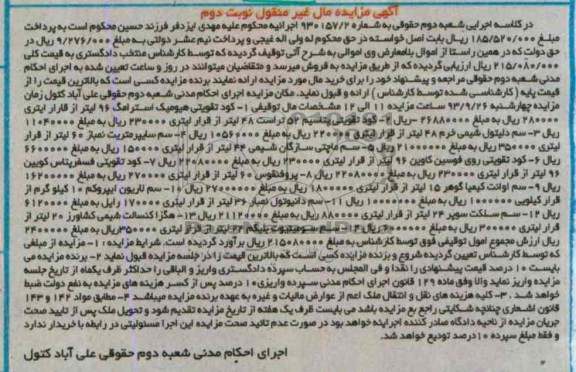 آگهی مزایده مال غیر منقول نوبت دوم
در کلاسه اجرایی شعبه دوم حقوقی به شماره ۹۳۰۱۵۷/۲ اجرائیه محکوم علیه مهدی ایزدفر فرزند حسین محکوم است به پرداخت
مبلغ ۱۸۵/۵۲۰/۰۰۰ ریال بابت اصل خواسته در حق محکوم له ولی اله غیجی و پرداخت نیم عشر دولتی به مبلغ ۹/۲۷۶/۰۰۰ ریال در
حق دولت که در همین راستا از اموال بلامعارض وی اموالی به شرح آتی توقیف گردیده که توسط کارشناس منتخب دادگستری به قیمت کلی
۲۱۵/۰۸۰/۰۰۰ ریال ارزیابی گردیده که از طریق مزایده به فروش میرسد و متقاضیان میتوانند در روز و ساعت تعیین شده به اجرای احکام
مدنی شعبه دوم حقوقی مراجعه و پیشنهاد خود را برای خرید مال مورد مزایده ارائه نمایند برنده مزایده کسی است که بالاترین قیمت را از
قیمت پایه ( کارشناسی شده توسط کارشناس ) ارائه و قبول نماید. مکان مزایده اجرای احکام مدنی شعبه دوم حقوقی علی آباد کتول زمان
مزایده چهارشنبه ۹۳/۹/۲۶ ساعت مزایده ۱۱ الی ۱۲ مشخصات مال توقیفی ۱- کود تقویتی هیومیک استرامگ ۹۶ لیتر از قرار لیتری
۲۸۰۰۰۰ ریال به مبلغ ۲۶۸۸۰۰۰۰ ریال ۲- کود تقویتی پتاسیم ۵۲ تراست ۴۸ لیتر از قرار لیتری ۲۳۰۰۰۰ ریال به مبلغ ۱۱۰۴۰۰۰۰
ریال ۳-سم دلیتول شیمی خرم ۴۸ لیتر از قرار لیتری ۲۲۰۰۰۰ ریال به مبلغ ۱۰۵۶۰۰۰۰ ریال ۴- سم سایپرمتریت نمباز ۶۰ لیتر از قرار
لیتری ۳۵۰۰۰۰ ریال به مبلغ ۲۱۰۰۰۰۰۰ ریال ۵-سم ماچتی سازگان شیمی ۴۴ لیتر از قرار لیتری ۱۵۰۰۰۰ ریال به مبلغ ۶۶۰۰۰۰۰
ریال ۶- کود تقویتی روی فوسین کاوین ۹۶ لیتر از قرار لیتری ۲۳۰۰۰۰ ریال به مبلغ ۲۲۰۸۰۰۰۰ ریال ۷- کود تقویتی فسفرپتاس کویین
۹۶ لیتر از قرار لیتری ۲۳۰۰۰۰ ریال به مبلغ ۲۲۰۸۰۰۰۰ ریال ۸- پروفنفوس ۶۰ لیتر از قرار لیتری ۲۷۰۰۰۰ ریال به مبلغ ۱۶۲۰۰۰۰۰
ریال ۹-سم اوانت کیمیا گوهر ۱۵ لیتر از قرار لیتری ۱۸۰۰۰۰۰ ریال به مبلغ ۲۷۰۰۰۰۰۰ ریال ۱۰- سم لاریون ایپروکم ۱۰ کیلو گرم از
قرار کیلویی ۱۰۰۰۰۰ ریال به مبلغ ۱۰۰۰۰۰۰ ریال ۱۱- سم دانیوتول نمباز ۳۶ لیتر از قرار لیتری ۱۷۰۰۰۰ رایل به مبلغ ۶۱۲۰۰۰۰
ریال ۱۲- سم سلکت سوپر ۲۴ لیتر از قرار لیتری ۸۸۰۰۰۰ ریال به مبلغ ۲۱۱۲۰۰۰۰ ریال ۱۳- هگزاکنسالت شیمی کشاورز ۲۰ لیتر از
قرار لیتری ۳۰۰۰۰۰ ریال به مبلغ ۶۰۰۰۰۰۰ ریال ۱۴- سم سومیتیوت بایگام ۲۴ لیتر از قرار لیتری ۳۵۰۰۰۰ ریال به مبلغ ۲۴۰۰۰۰۰
ریال ارزش مجموع امول توقیفی فوق توسط کارشناس به مبلغ ۲۱۵۰۸۰۰۰۰ ریال برآورد گردیده است. شرایط مزایده : ۱- مزایده از مبلغی
که توسط کارشناس تعیین گردیده شروع و برنده مزایده کسی است که بالاترین قیمت را در جلسه مزایده قبول نماید ۲- برنده مزایده می
بایست ۱۰ درصد قیمت پیشنهادی را نقدا و فی المجلس به حساب سپرده دادگستری واریز و الباقی را حداکثر ظرف یکماه از تاریخ جلسه
مزایده واریز نماید والا وفق ماده ۱۲۹ قانون اجرای احکام مدنی سپرده واریزی ۱۰ درصد پس از کسر هزینه های مزایده به نفع دولت ضبط
خواهد شد . ۳- کلیه هزینه های نقل و انتقال ملک اعم از عوارض مالیات و غیره به عهده برنده مزایده میباشد ۴- مطابق مواد ۱۴۲ و ۱۴۳
قانون اشعاری چنانچه شکایتی راجع بع مزایده باشد می بایست ظرف یک هفته از تاریخ مزایده تقدیم شود و تحویل ملک پس از تایید صحت
جریان مزایده از ناحیه دادگاه صادر کننده اجرائیه خواهد بود در صورت عدم تائید صحت مزایده این اجرا مسئولیتی در رابطه با خریدار ندارد
و فقط مبلغ سپرده ۱۰ درصد تودیع خواهد شد.
اجرای احکام مدنی شعبه دوم حقوقی علی آباد کتول